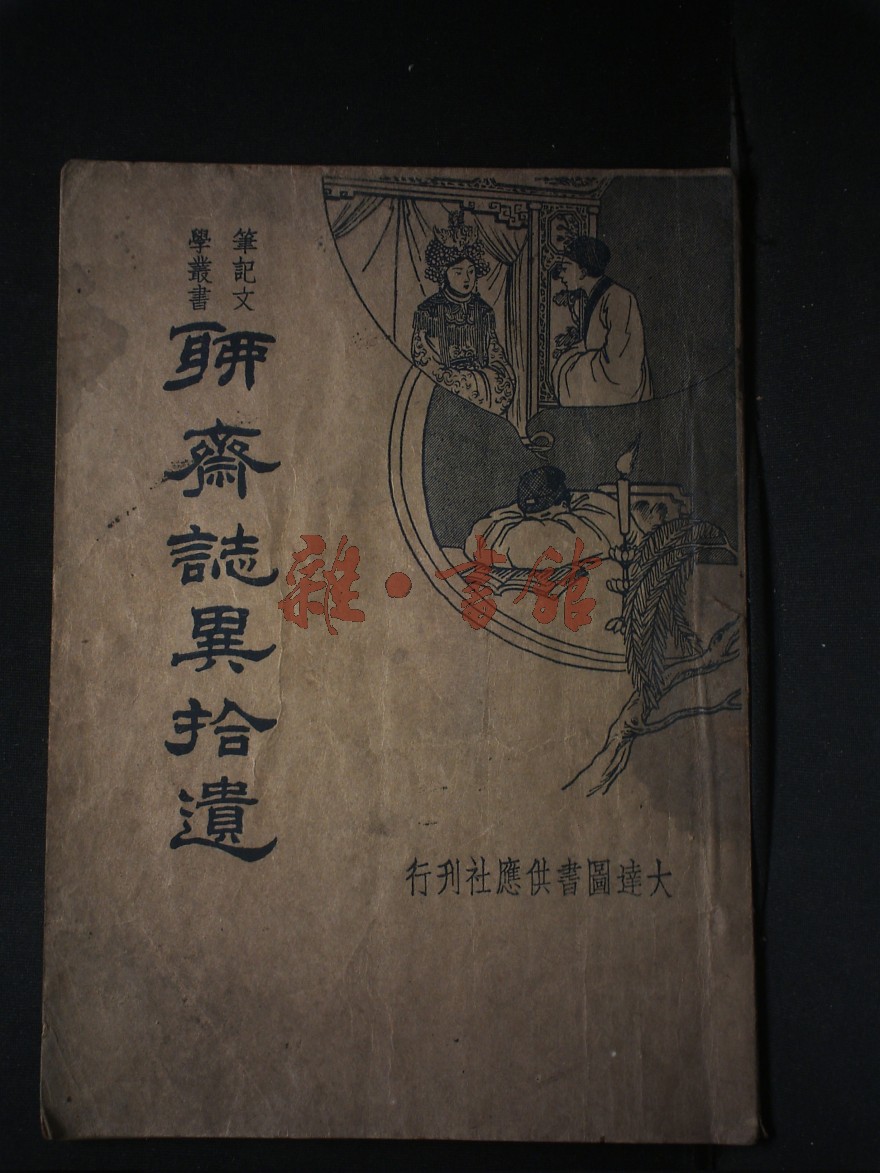 筆記文
學叢書
聊齋誌異拾遺
大達圖書供應社刊行
雜·書館